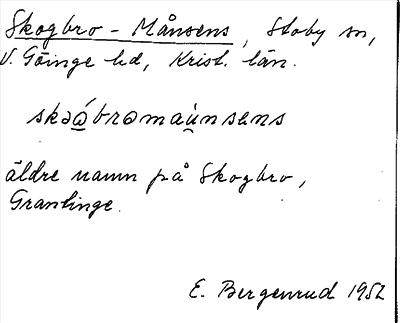 Skogbro - Månsens, Stoby sn,
V. Göinge hd, Krist. län.
skɔǻbrɷmaùnsɛns
äldre namn på Skogbro,
Grantinge.
E. Bergenrud 1952